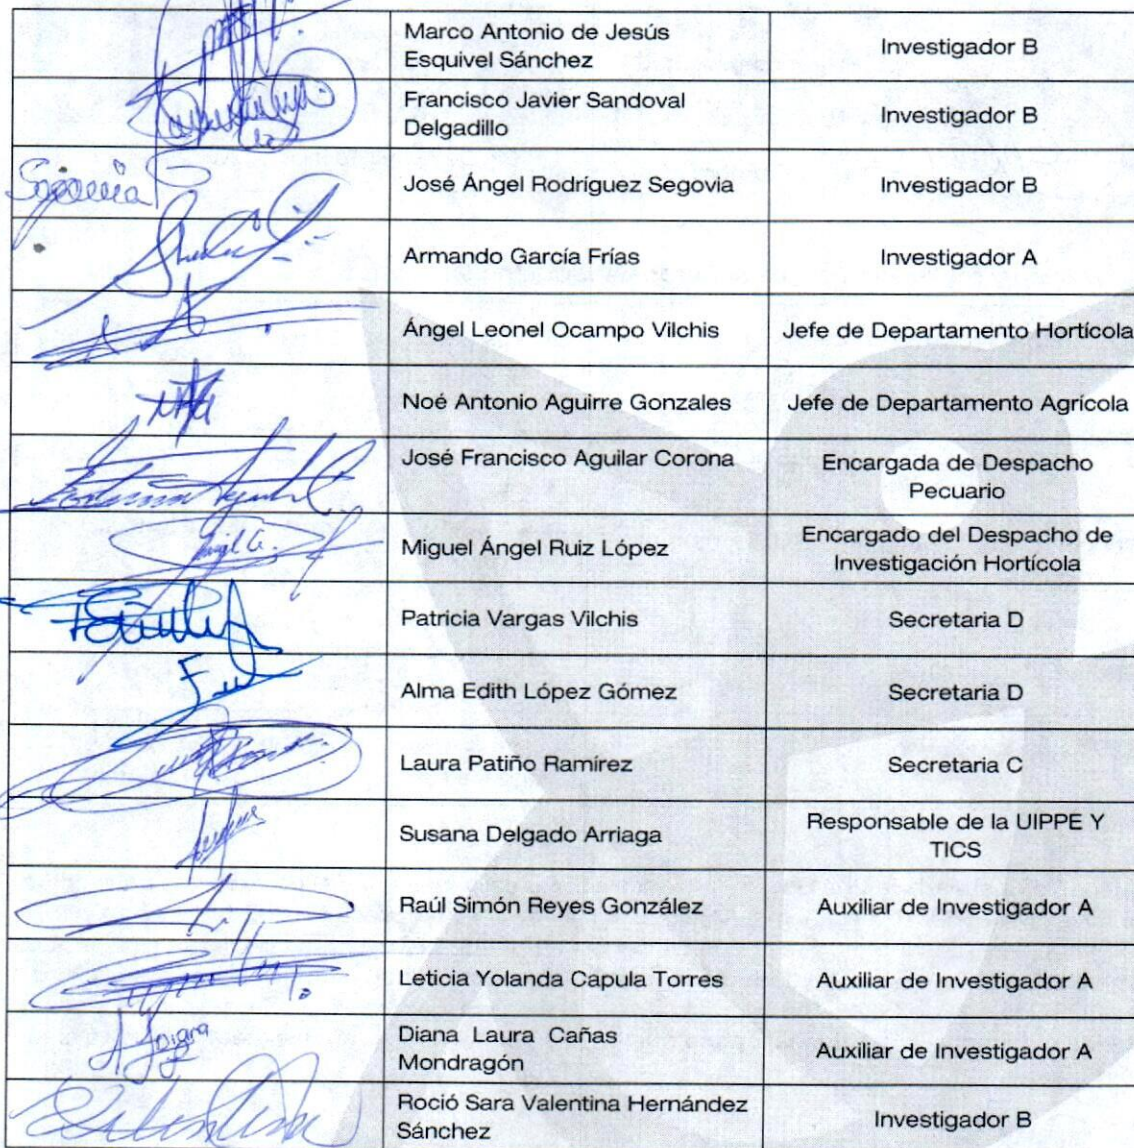 Marco Antonio de Jesús
Esquivel Sánchez
Investigador B
Francisco Javier Sandoval
Delgadillo
Investigador B
Segovia
José Ángel Rodríguez Segovia
Investigador B
Armando García Frías
Investigador A
Ángel Leonel Ocampo Vilchis
Jefe de Departamento Hortícola
Noé Antonio Aguirre Gonzales
Jefe de Departamento Agrícola
José Francisco Aguilar Corona
Encargada de Despacho
Pecuario
Miguel Ángel Ruiz López
Encargado del Despacho de
Investigación Hortícola
Patricia Vargas Vilchis
Secretaria D
Alma Edith López Gómez
Secretaria D
Laura Patiño Ramírez
Secretaria C
Susana Delgado Arriaga
Responsable de la UIPPE Y
TICS
Raúl Simón Reyes González
Auxiliar de Investigador A
Leticia Yolanda Capula Torres
Auxiliar de Investigador A
Diana
Diana Laura Cañas
Mondragón
Auxiliar de Investigador A
Roció Sara Valentina Hernández
Sánchez
Investigador B